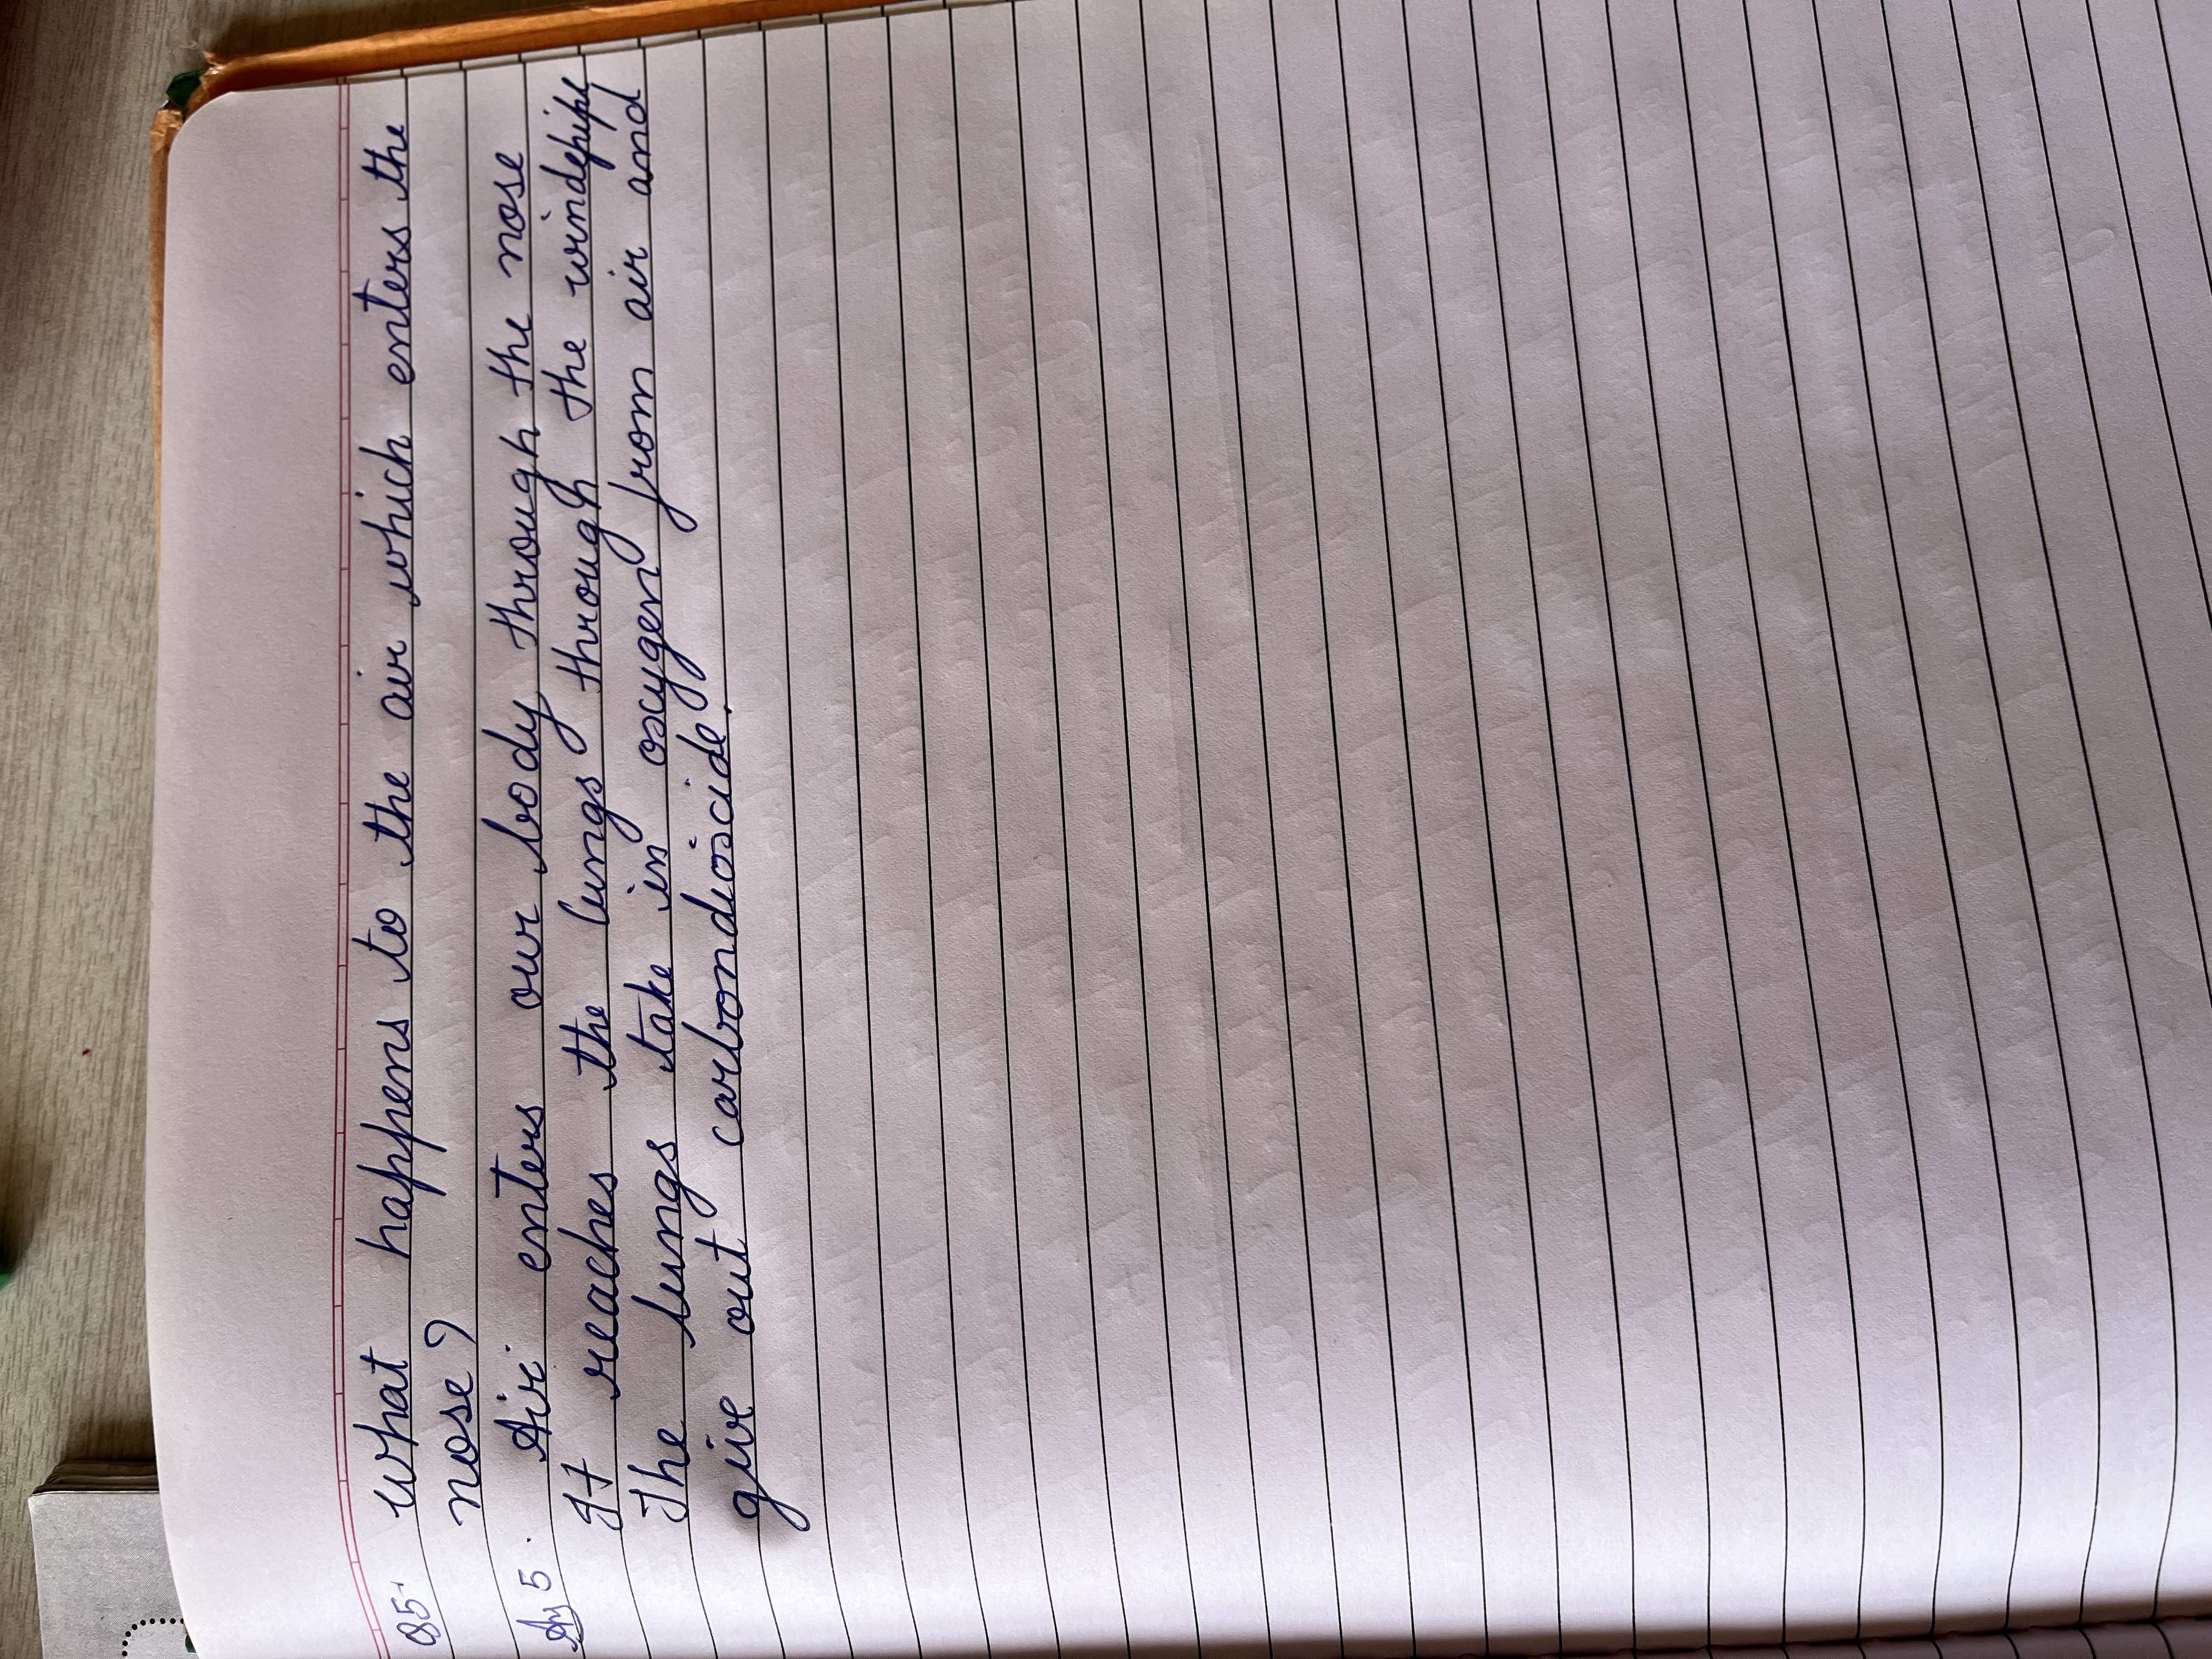 Q5. What happens to the air which enters the
nose?
Ans 5. Air enters our body through the nose
It reaches the lungs through the windepipe
The lungs take in oxygen from air and
give out carbondioxide.